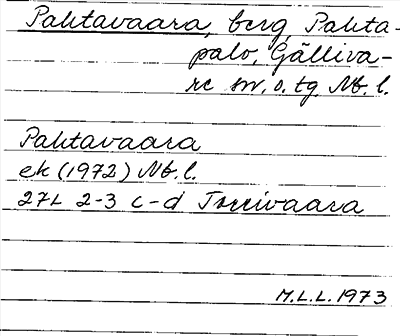 Pahtavaara, berg, Pahta-
palo, Gälliva-
re sn, o. tg Nb. l.
Pahtavaara
ek (1972) Nb. l.
27L 2-3 c-d
M.L.L. 1973